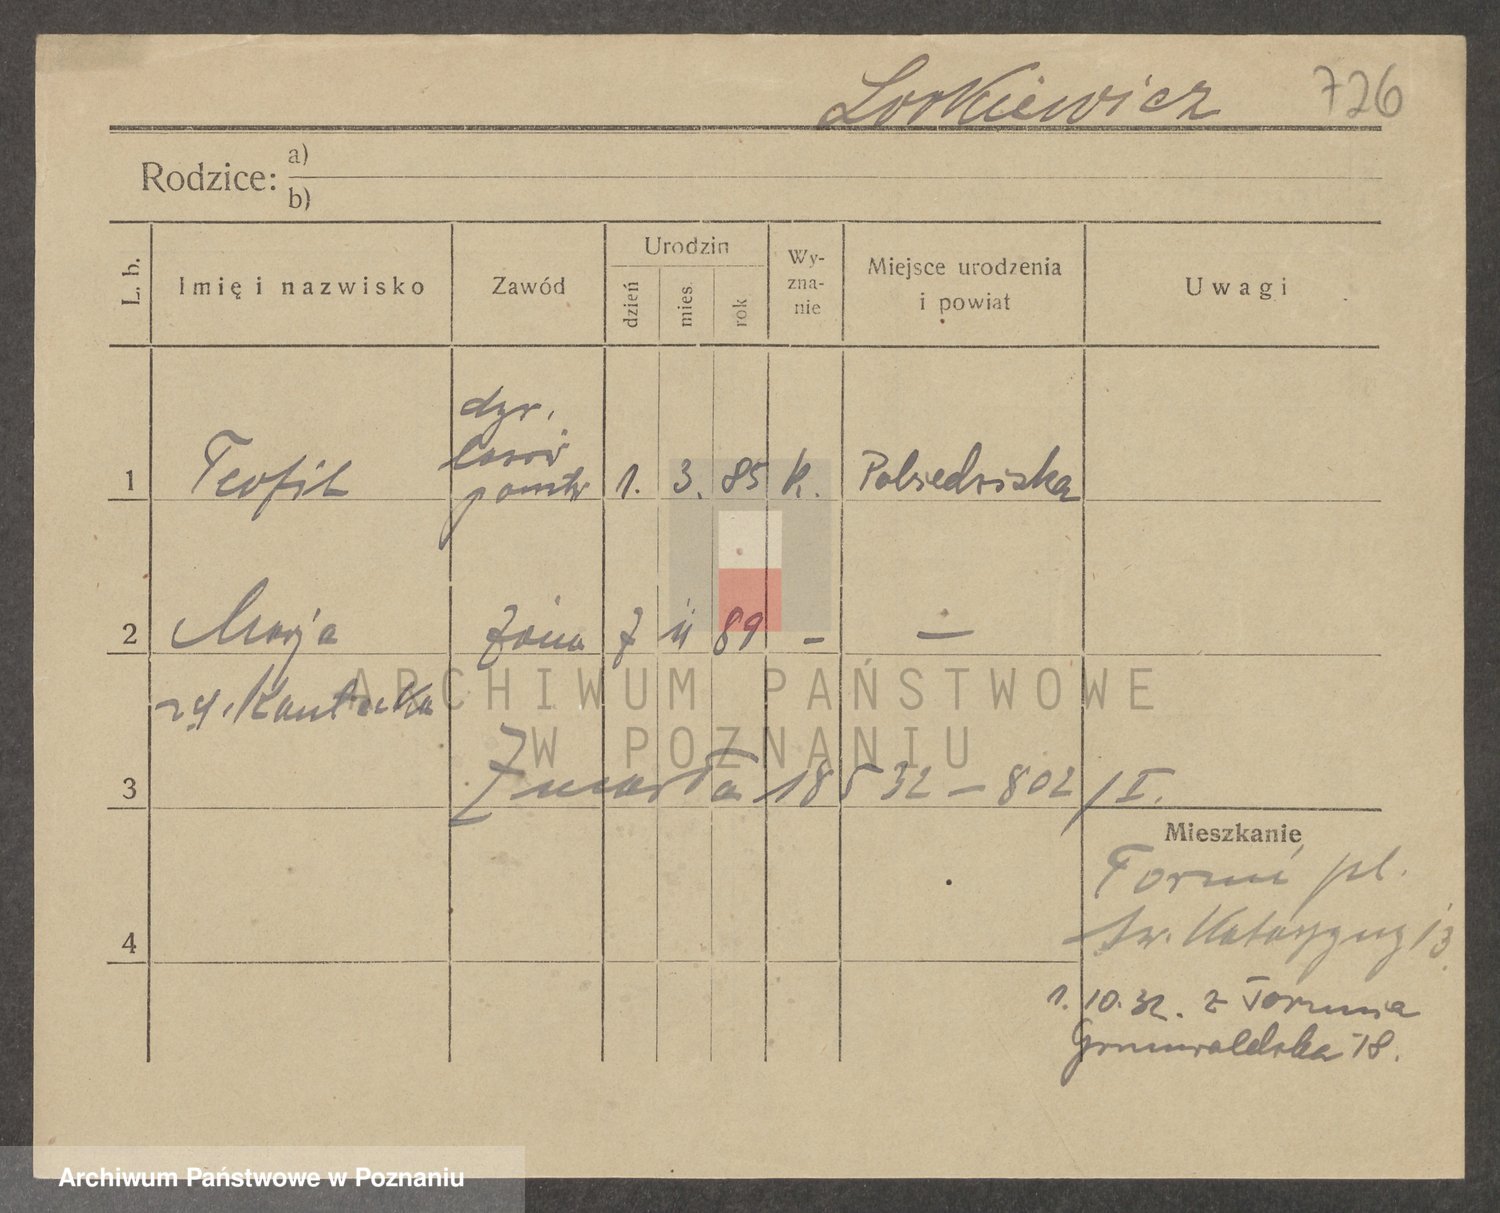 Lorkiewicz 726
Rodzice: a)
b)
L. b.
Imię i nazwisko
Zawód
Urodzin
dzień
mies.
rok
Wy-
zna-
nie
Miejsce urodzenia
i powiat
Uwagi
dyr.
lasów
1 Teofil państw 1. 3. 85 k. Pobiedziska
2 Marja żona 7 11 89 – —
ARCHIWUM PAŃSTWOWE
W POZNANIU
3 Zmarła 18 5 32 – 802/I.
Mieszkanie
Toruń pl.
św. Katarzyny 13
4
1. 10. 32. z Torunia
Grunwaldzka 18.
Archiwum Państwowe w Poznaniu